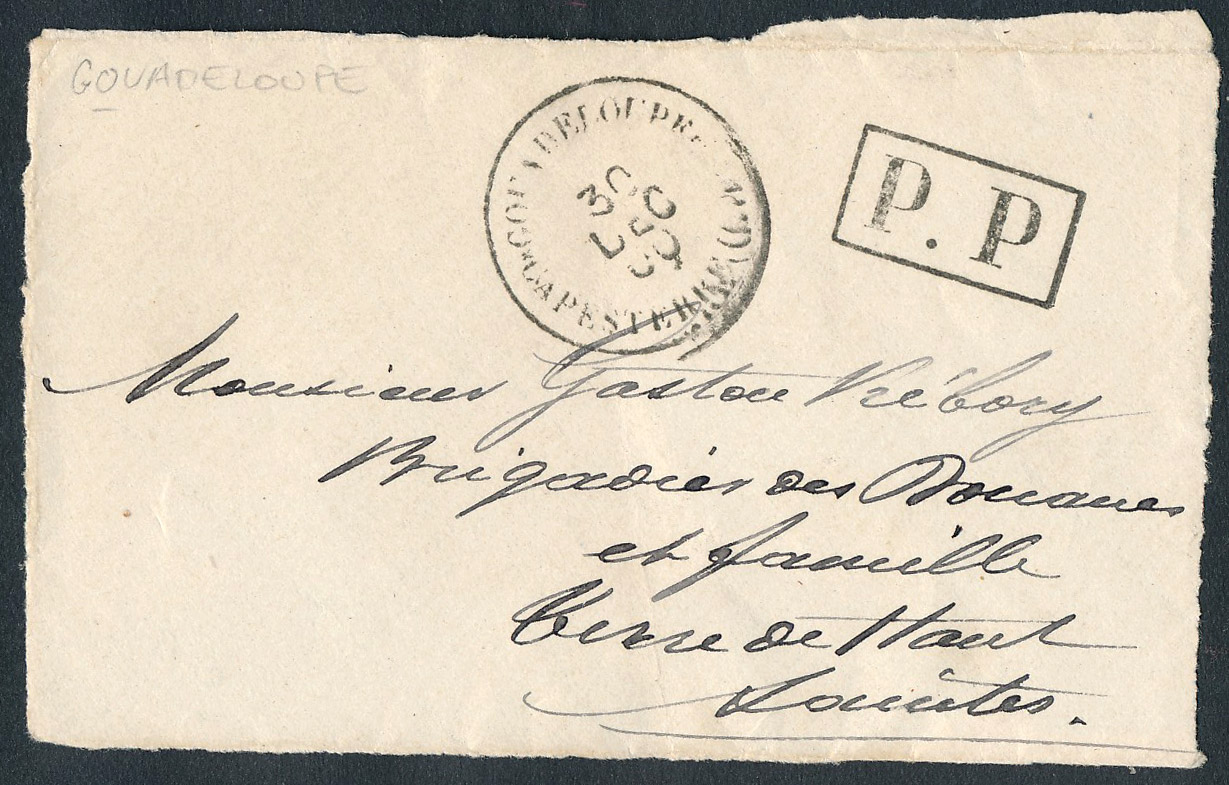 GOUADELOUPE
GOUADELOUPE
CAPESTERRE
P. P
Monsieur Gaston
Brigadier des Douanes
et famille
Terre de Haut
Saintes.